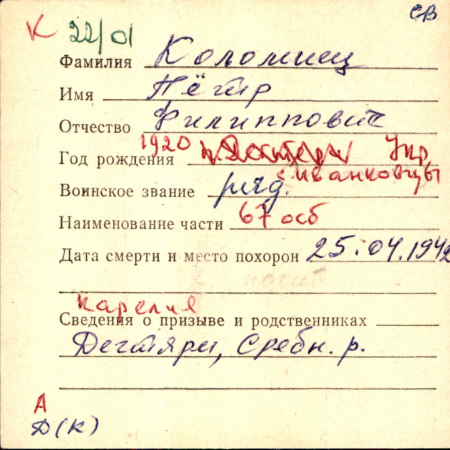 К 22/01 СВ
Фамилия Коломиец
Имя Пётр
Отчество Филиппович
1920
Год рождения Укр
с Иванковцы
Воинское звание ряд.
Наименование части 67 осб
Дата смерти и место похорон 25.04.1942
погиб
Карелия
Сведения о призыве и родственниках
Дегтяри, Сребн. р.
А
Д(К)